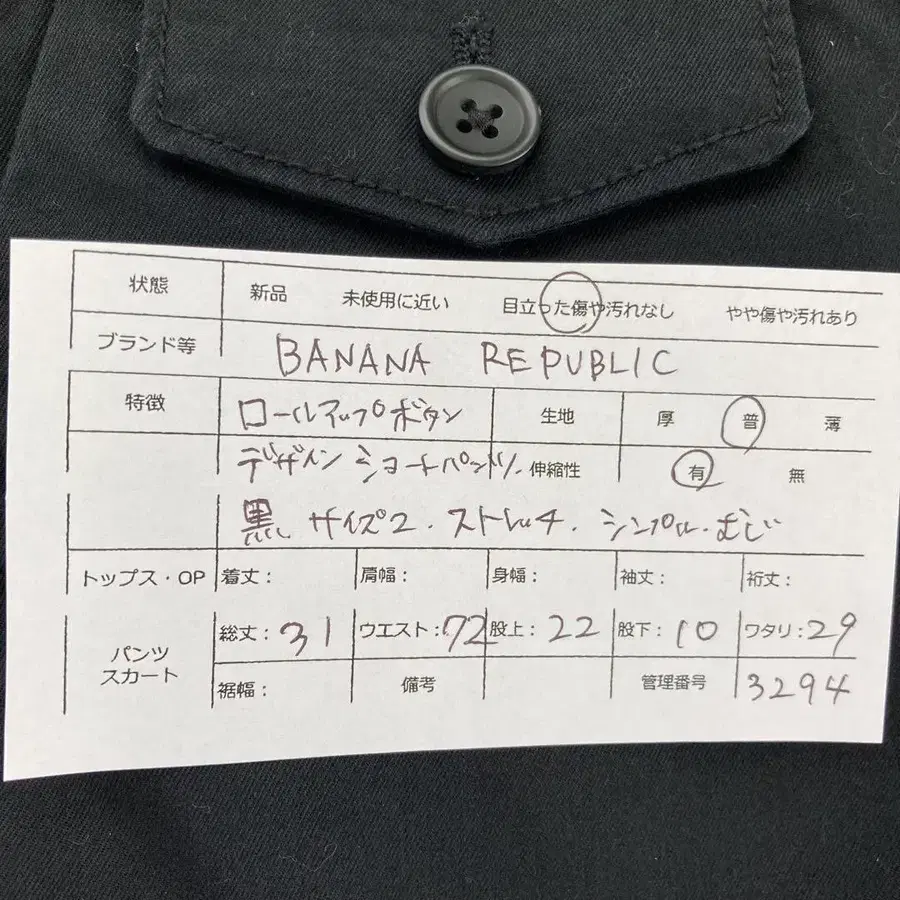 状態 新品 未使用に近い 目立った傷や汚れなし やや傷や汚れあり
ブランド等 BANANA REPUBLIC
特徴 ロールアップボタン 生地 厚 普 薄
デザインショートパンツ. 伸縮性 有 無
黒 サイズ2. ストレッチ. シンプル. むじ
トップス・OP 着丈: 肩幅: 身幅: 袖丈: 裄丈:
パンツ スカート 総丈:31 ウエスト:72 股上:22 股下:10 ワタリ:29
裾幅: 備考 管理番号 3294